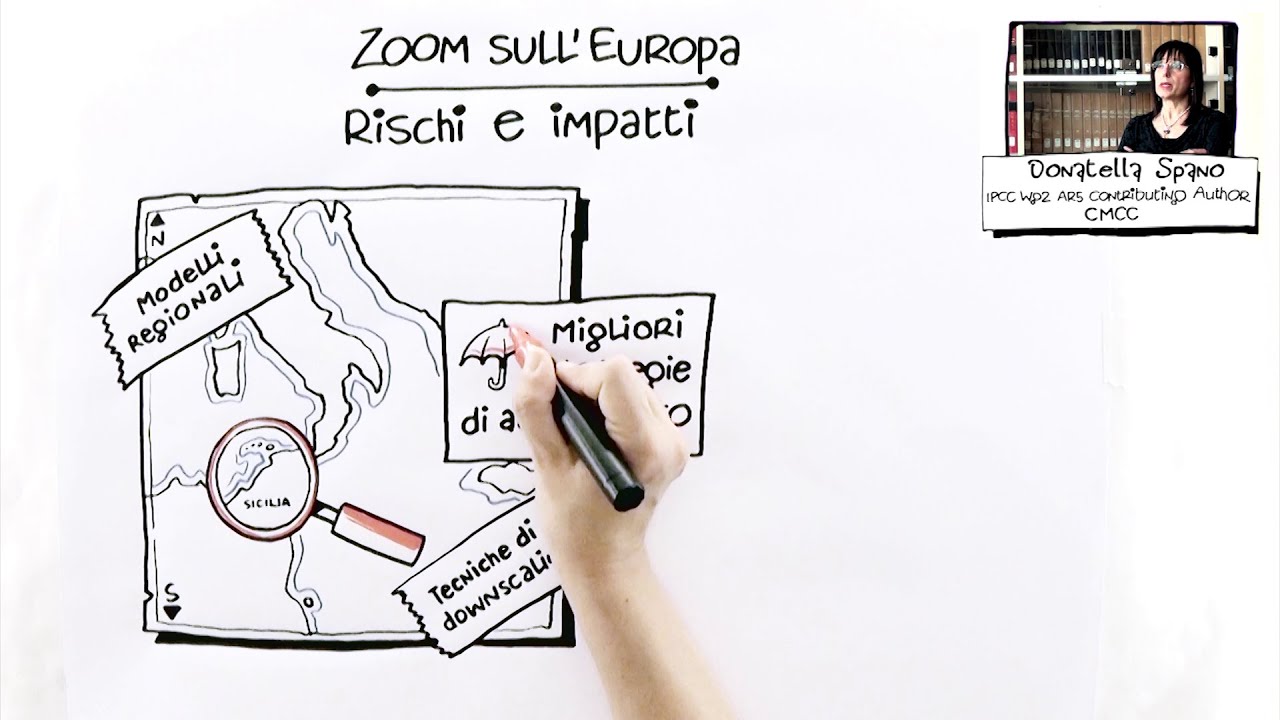 Zoom sull'Europa
Rischi e impatti
Donatella Spano
IPCC Wg2 AR5 contributing Author
CMCC
N
Modelli
regionali
Migliori
di
SICILIA
Tecniche di
downscali
S